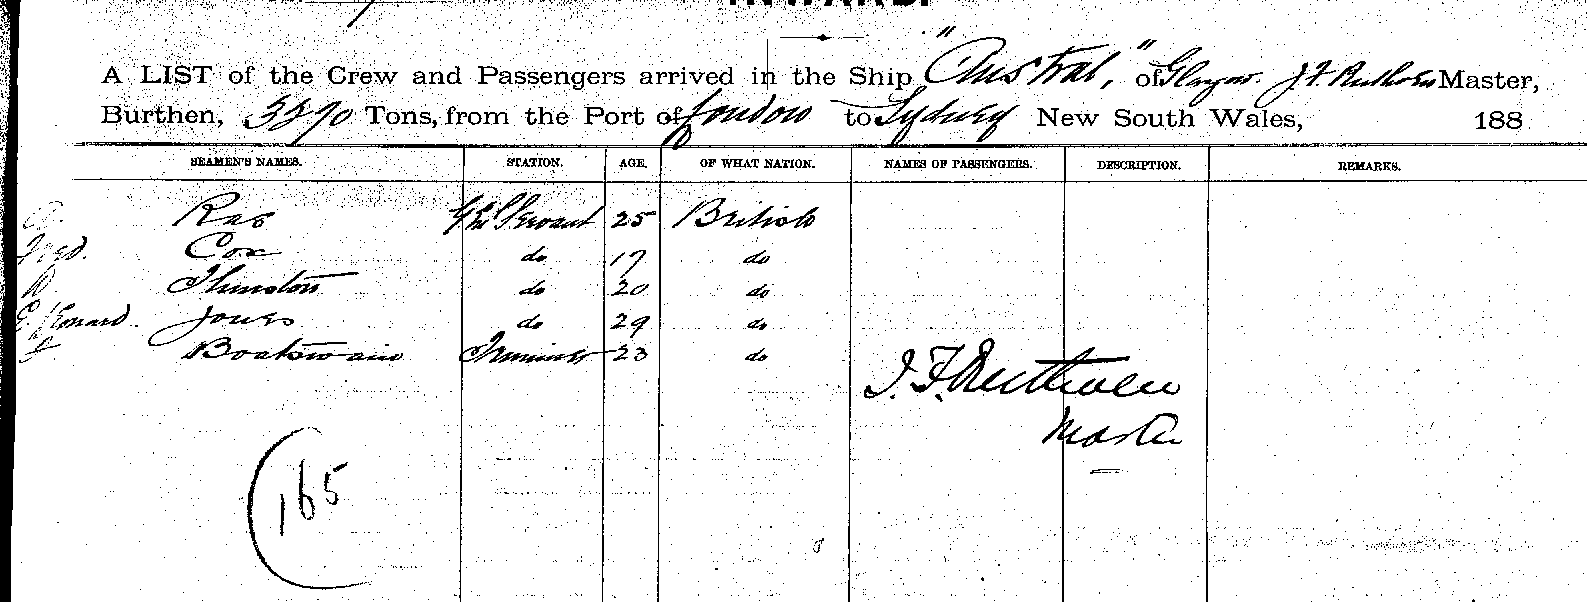 INWARD.
A LIST of the Crew and Passengers arrived in the Ship "Austral," of Glasgow. J F Ruthven Master,
Burthen, 5590 Tons, from the Port of London to Sydney New South Wales, 188
SEAMEN'S NAMES. STATION. AGE. OF WHAT NATION. NAMES OF PASSENGERS. DESCRIPTION. REMARKS.
Rae Genl Servant 25 British
Fred. Cox do 17 do
Thurston do 20 do
Jones do 29 do
Boatswain Trimmer 23 do
J. F. Ruthven
Master
165